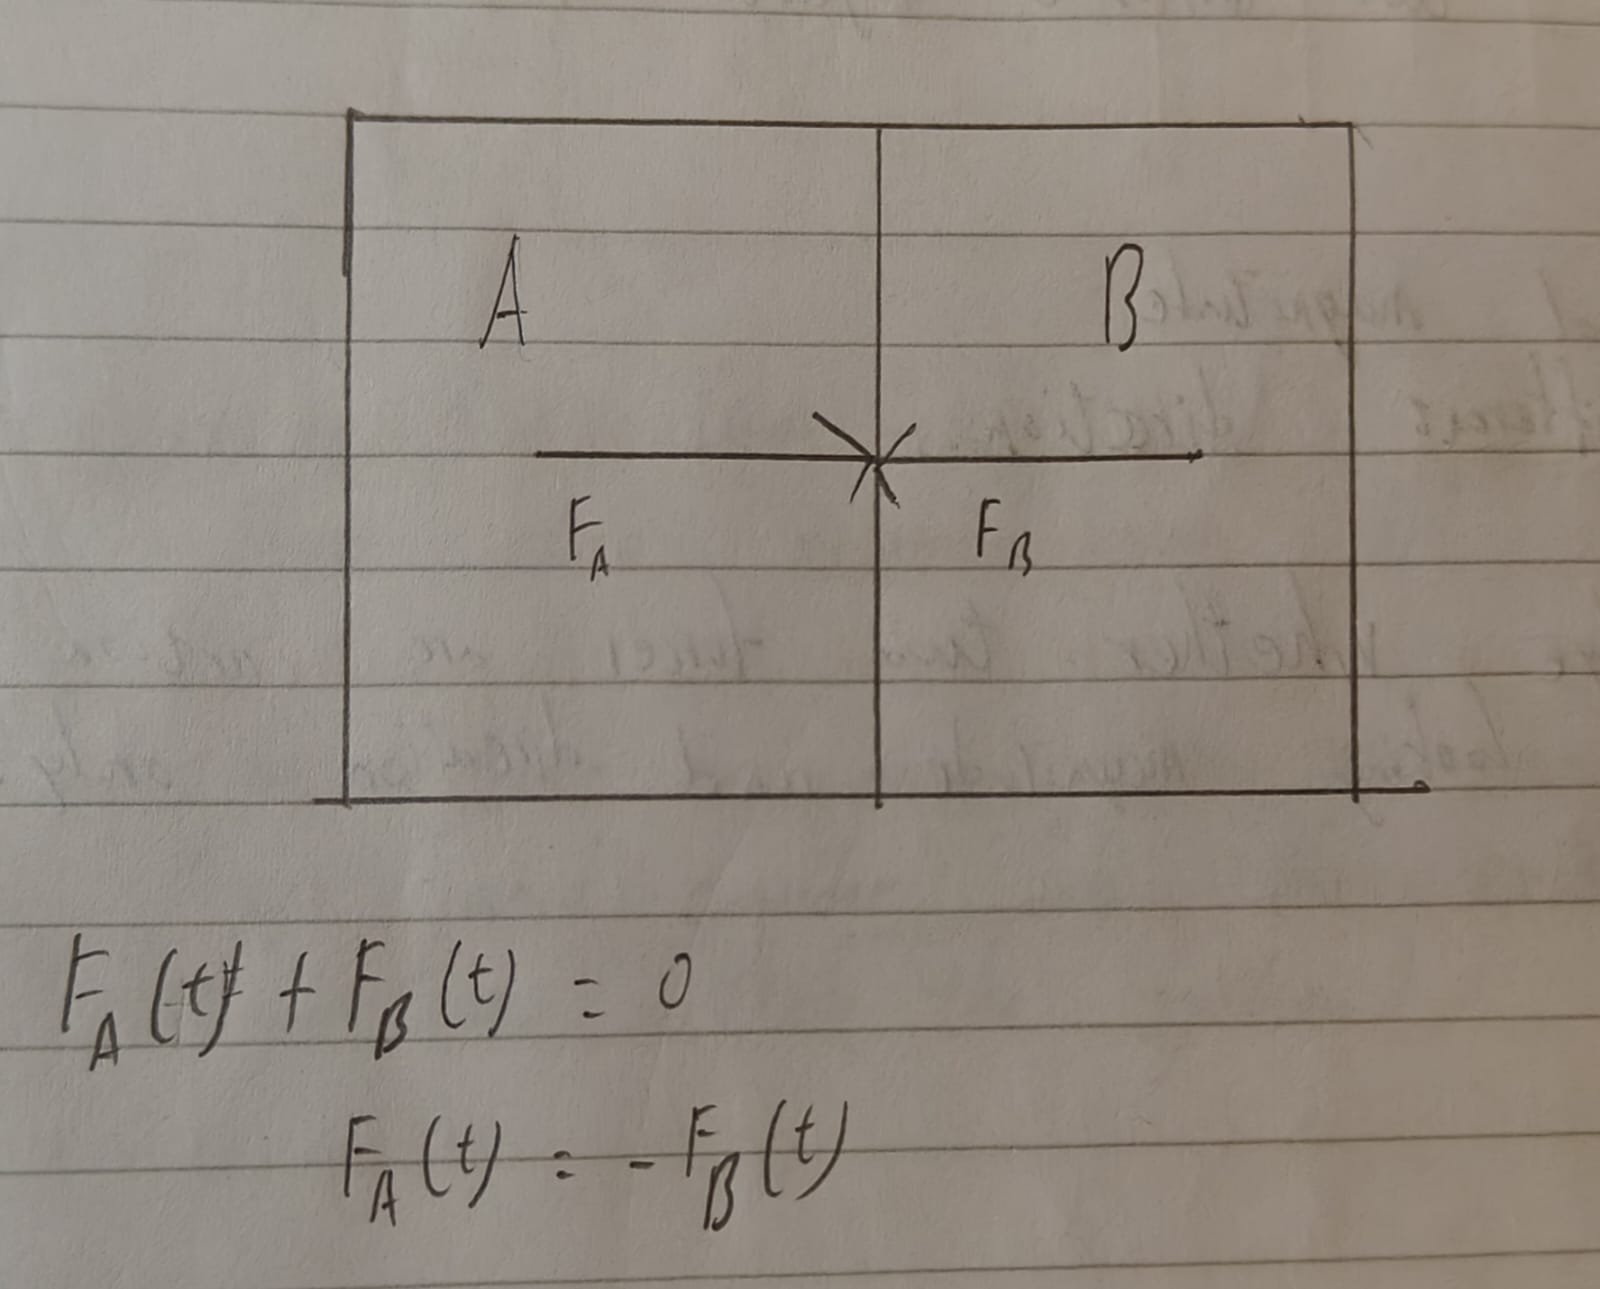 A B
F_A F_B
F_A(t) + F_B(t) = 0
F_A(t) = - F_B(t)